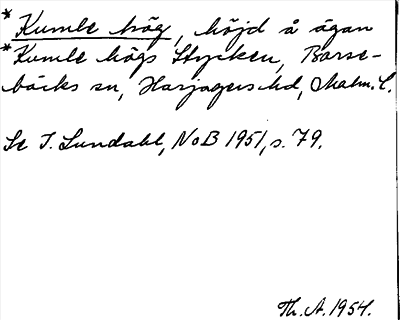 *Kumle hög, höjd å ägan
*Kumle högs Stycken, Barse-
bäcks sn, Harjagers hd, Malm. l.
Se I. Lundahl, NoB 1951, s. 79.
Th. A. 1954.